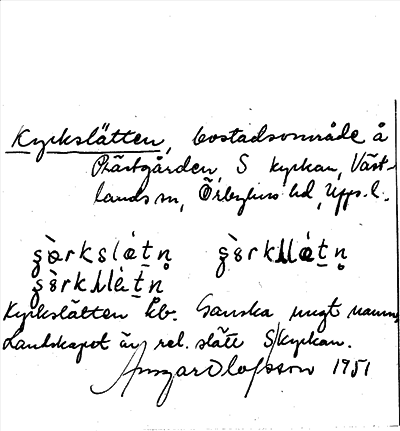 Kyrkslätten, bostadsområde å
Prästgården, S kyrkan, Väst-
lands sn, Örbyhus hd, Upps. l.
Kyrkslätten kb. Ganska ungt namn.
Landskapet är rel. slätt S/kyrkan.
Ansgar Olofsson 1951